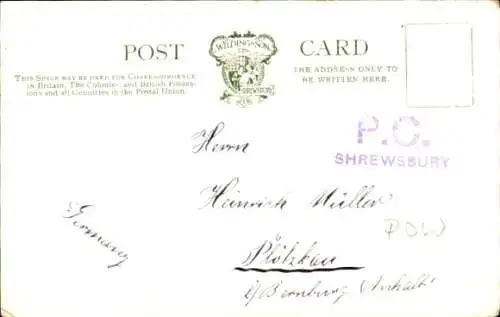 POST CARD
WILDING & SON
LTD
SHREWSBURY
THIS SPACE MAY BE USED FOR CORRESPONDENCE
IN BRITAIN, THE COLONIES AND BRITISH POSSES-
IONS AND ALL COUNTRIES IN THE POSTAL UNION.
THE ADDRESS ONLY TO
BE WRITTEN HERE.
P.C.
SHREWSBURY
Herrn
Heinrich Müller
POW
Germany
Plötzkau
b/Bernburg (Anhalt)